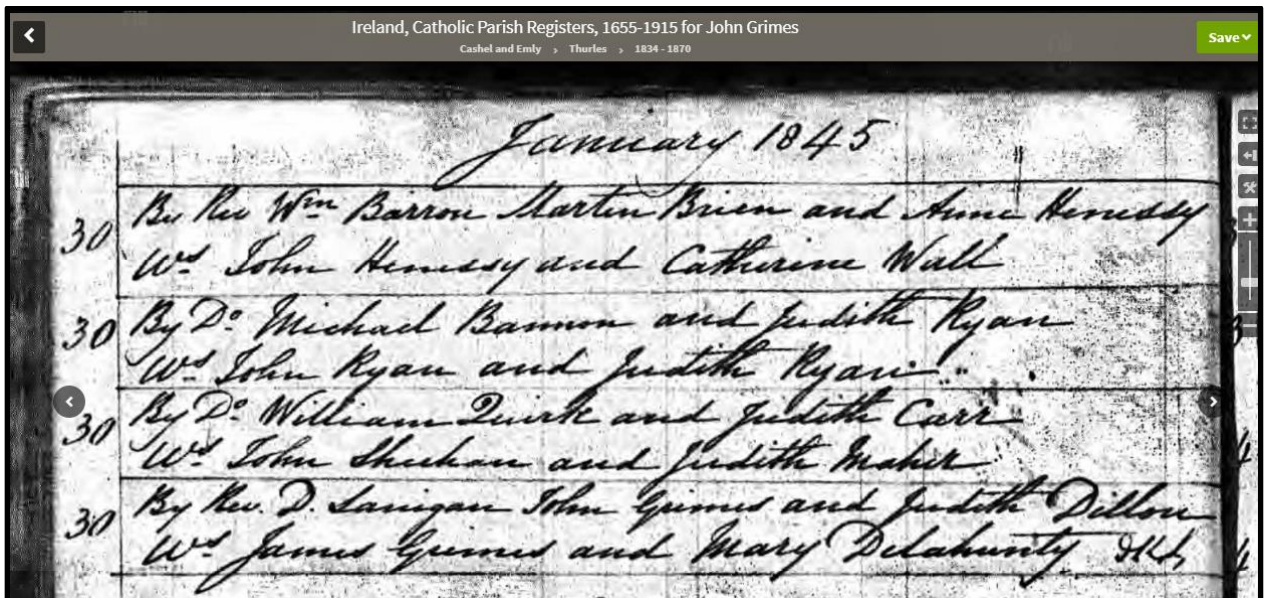 Ireland, Catholic Parish Registers, 1655-1915 for John Grimes
Cashel and Emly › Thurles › 1834 - 1870
Save
January 1845
30 By Rev Wm Barron Martin Brien and Anne Henessy
Ws John Henessy and Catherine Wall
30 By Do Michael Bannon and Judith Ryan
Ws John Ryan and Judith Ryan
30 By Do William Quirk and Judith Carr
Ws John Sheehan and Judith Maher
30 By Rev. D. Lanigan John Grimes and Judith Dillon
Ws James Grimes and Mary Delahunty